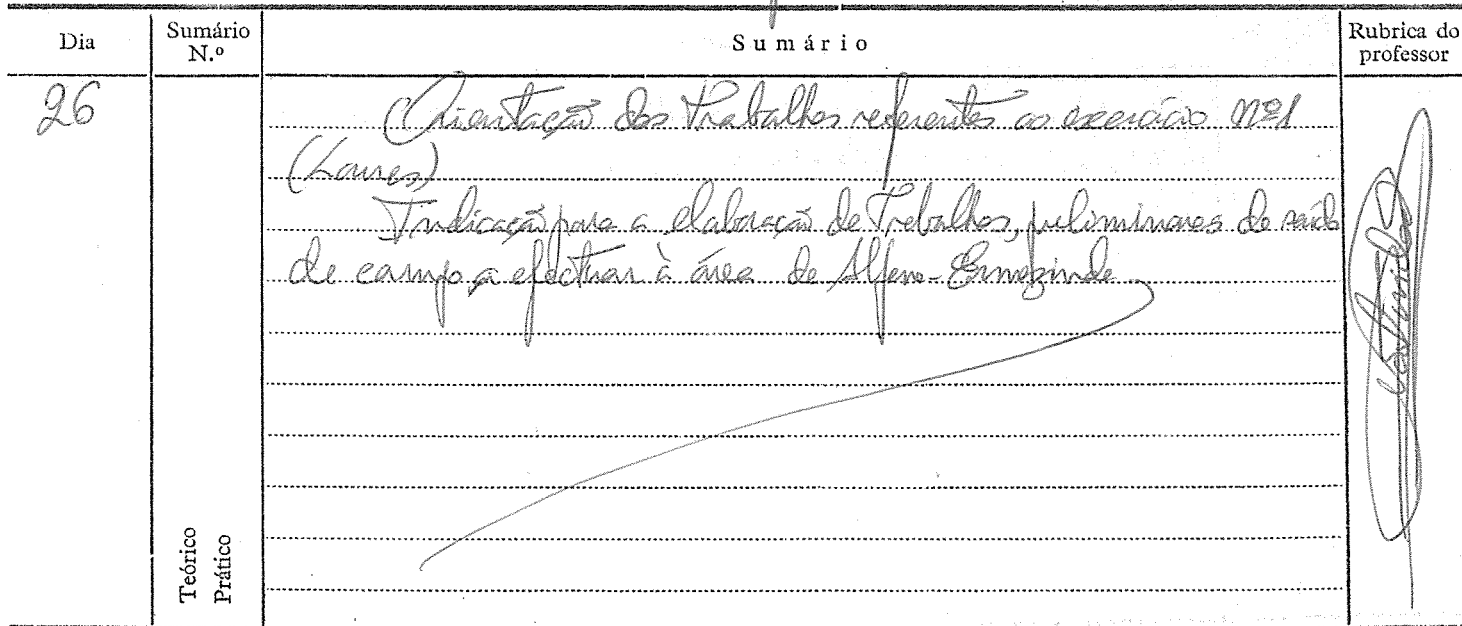 Dia
Sumário N.º
Sumário
Rubrica do professor
26
Orientação dos Trabalhos referentes ao exercício Nº1
(Loures)
Indicação para a elaboração de Trabalhos, preliminares de saída
de campo a efectuar à área de Alfena-Ermezinde
Teórico
Prático